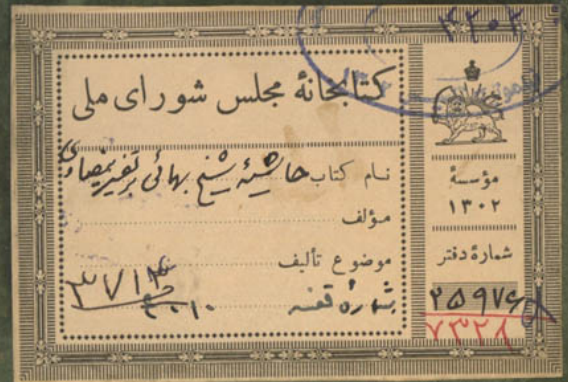 ۴۲۰۲
کتابخانهٔ مجلس شورای ملی
نام کتاب حاشیه شیخ بهائی بر تفسیر بیضاوی
مؤلف
موضوع تألیف
شماره قفسه
۳۷۱۴
مؤسسهٔ
۱۳۰۲
شمارهٔ دفتر
۲۵۹۷۶
۷۳۲۸